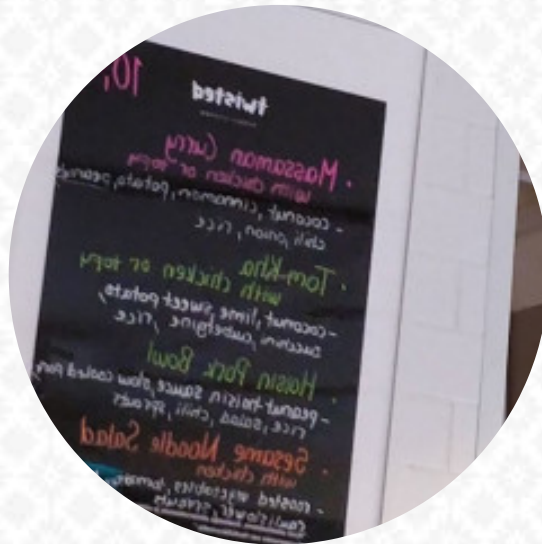 twisted
10,
• Massaman Curry
with chicken or tofu
- coconut, cinnamon, potato, peanuts
chili onion, rice
• Tom-Kha
with chicken or tofu
- coconut, lime, sweet potato,
zucchini, aubergine, rice
• Hoisin Pork Bowl
- peanut-hoisin sauce, slow cooked pork,
rice, salad, chili, sprouts
• Sesame Noodle Salad
with chicken
- roasted vegetables, tomato,
cauliflower, sprouts